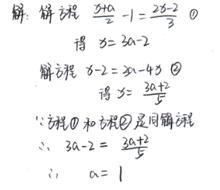 解: 解方程 (x+a)/2 - 1 = (2x-2)/3 ①
得 x = 3a-2
解方程 x-2 = 3a-4x ②
得 x = (3a+2)/5
∵方程①和方程②是同解方程
∴ 3a-2 = (3a+2)/5
∴ a = 1